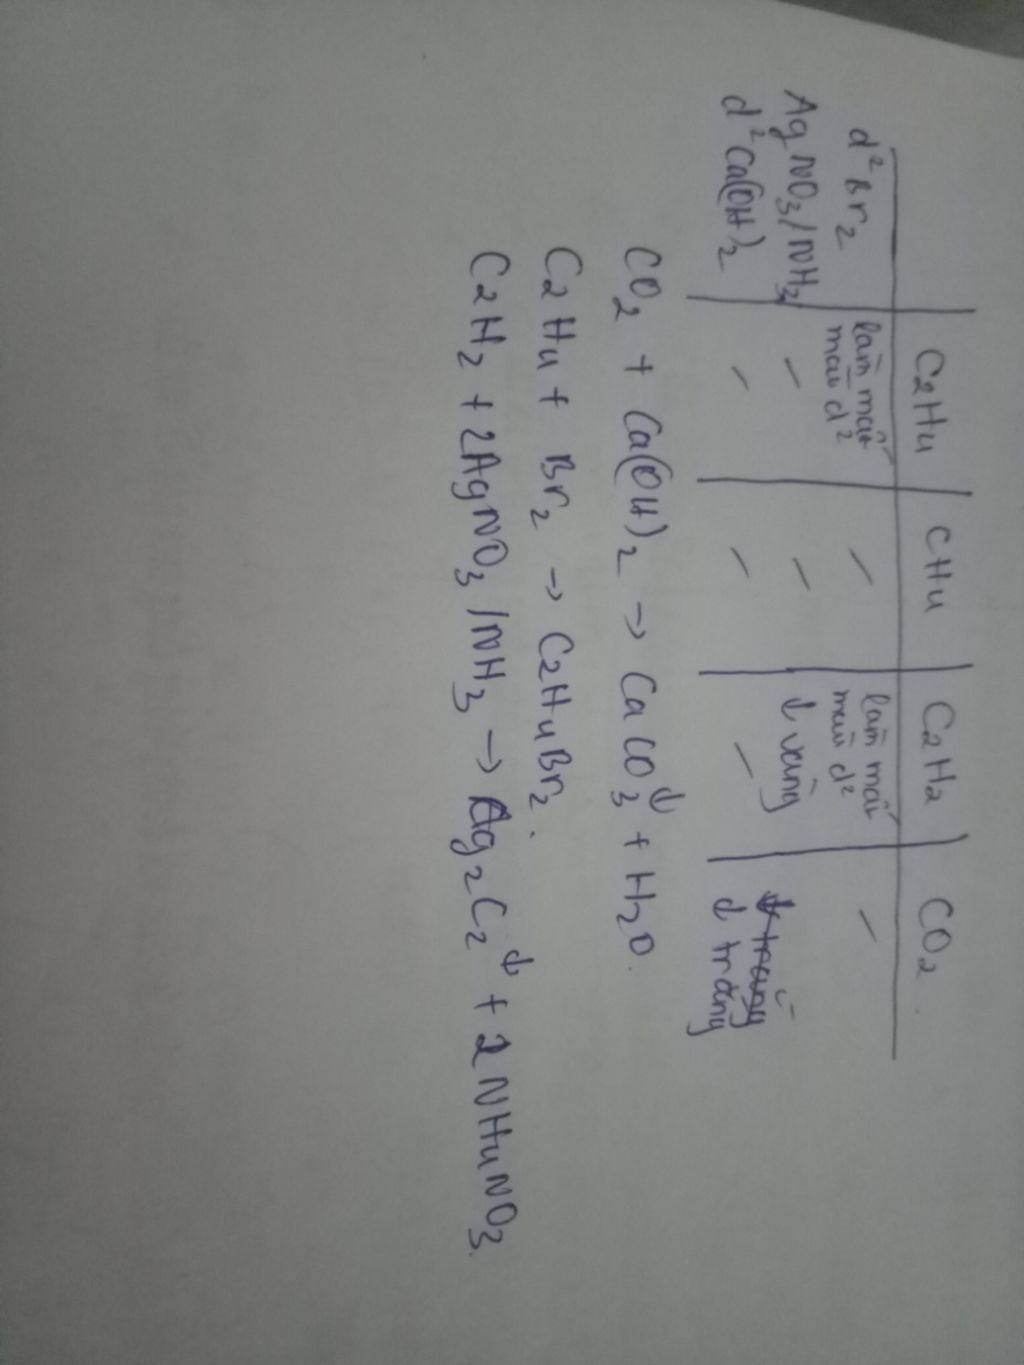 C2H4 CH4 C2H2 CO2
d² Br2 làm mất màu d² – làm mất màu d² –
AgNO3/NH3 – – ↓ vàng ↓ trắng
d² Ca(OH)2 – – – ↓ trắng
CO2 + Ca(OH)2 → CaCO3↓ + H2O.
C2H4 + Br2 → C2H4Br2.
C2H2 + 2AgNO3/NH3 → Ag2C2↓ + 2NH4NO3.